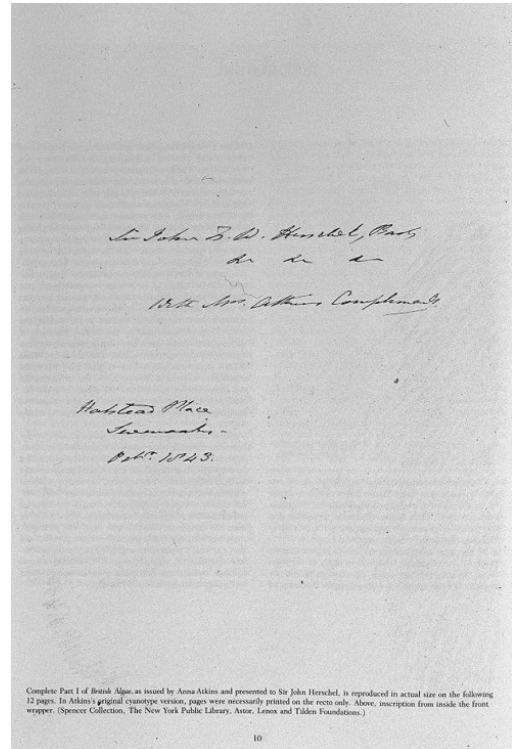 Sir John F. W. Herschel, Bart
&c &c &c
With Mrs. Atkins Compliments
Halstead Place
Sevenoaks-
Octr. 1843.
Complete Part I of British Algae, as issued by Anna Atkins and presented to Sir John Herschel, is reproduced in actual size on the following
12 pages. In Atkins's original cyanotype version, pages were necessarily printed on the recto only. Above, inscription from inside the front
wrapper. (Spencer Collection, The New York Public Library, Astor, Lenox and Tilden Foundations.)
10